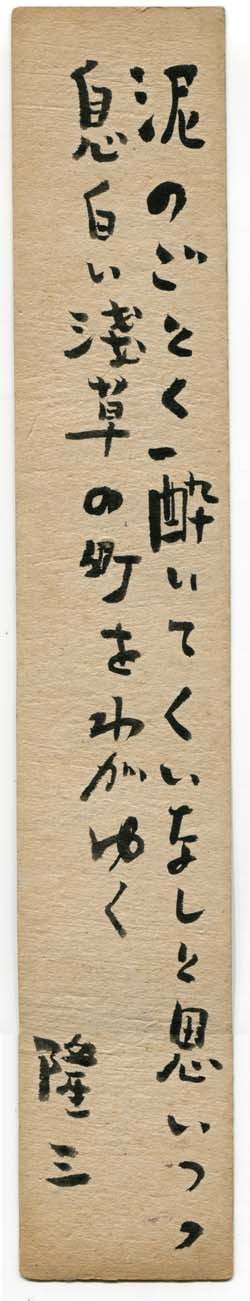 泥のごとく酔いてくいなしと思いつつ
息白い淺草の町をわがゆく
隆三